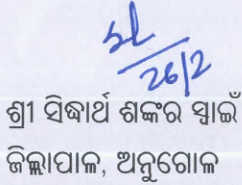 26/2
ଶ୍ରୀ ସିଦ୍ଧାର୍ଥ ଶଙ୍କର ସ୍ୱାଇଁ
ଜିଲ୍ଲାପାଳ, ଅନୁଗୋଳ